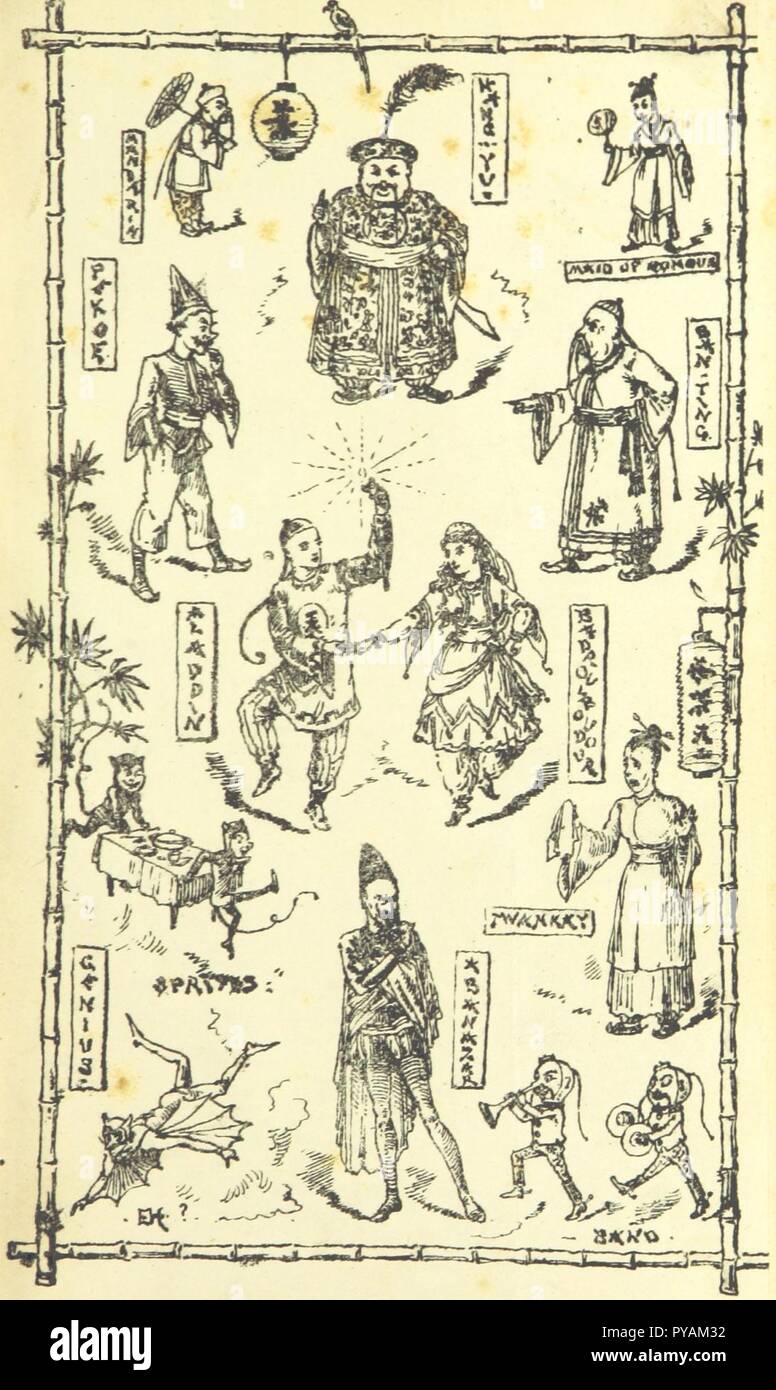 MANDARIN
KANG-YU-
MAID OF HONOUR
PEKOE.
BAN-TING
ALADDIN
BADROULBOUDOUR
TWANKAY
SPRITES:
GENIUS.
ABANAZAR
EH ?
- BAND -
alamy
alamy
Image ID: PYAM32
www.alamy.com